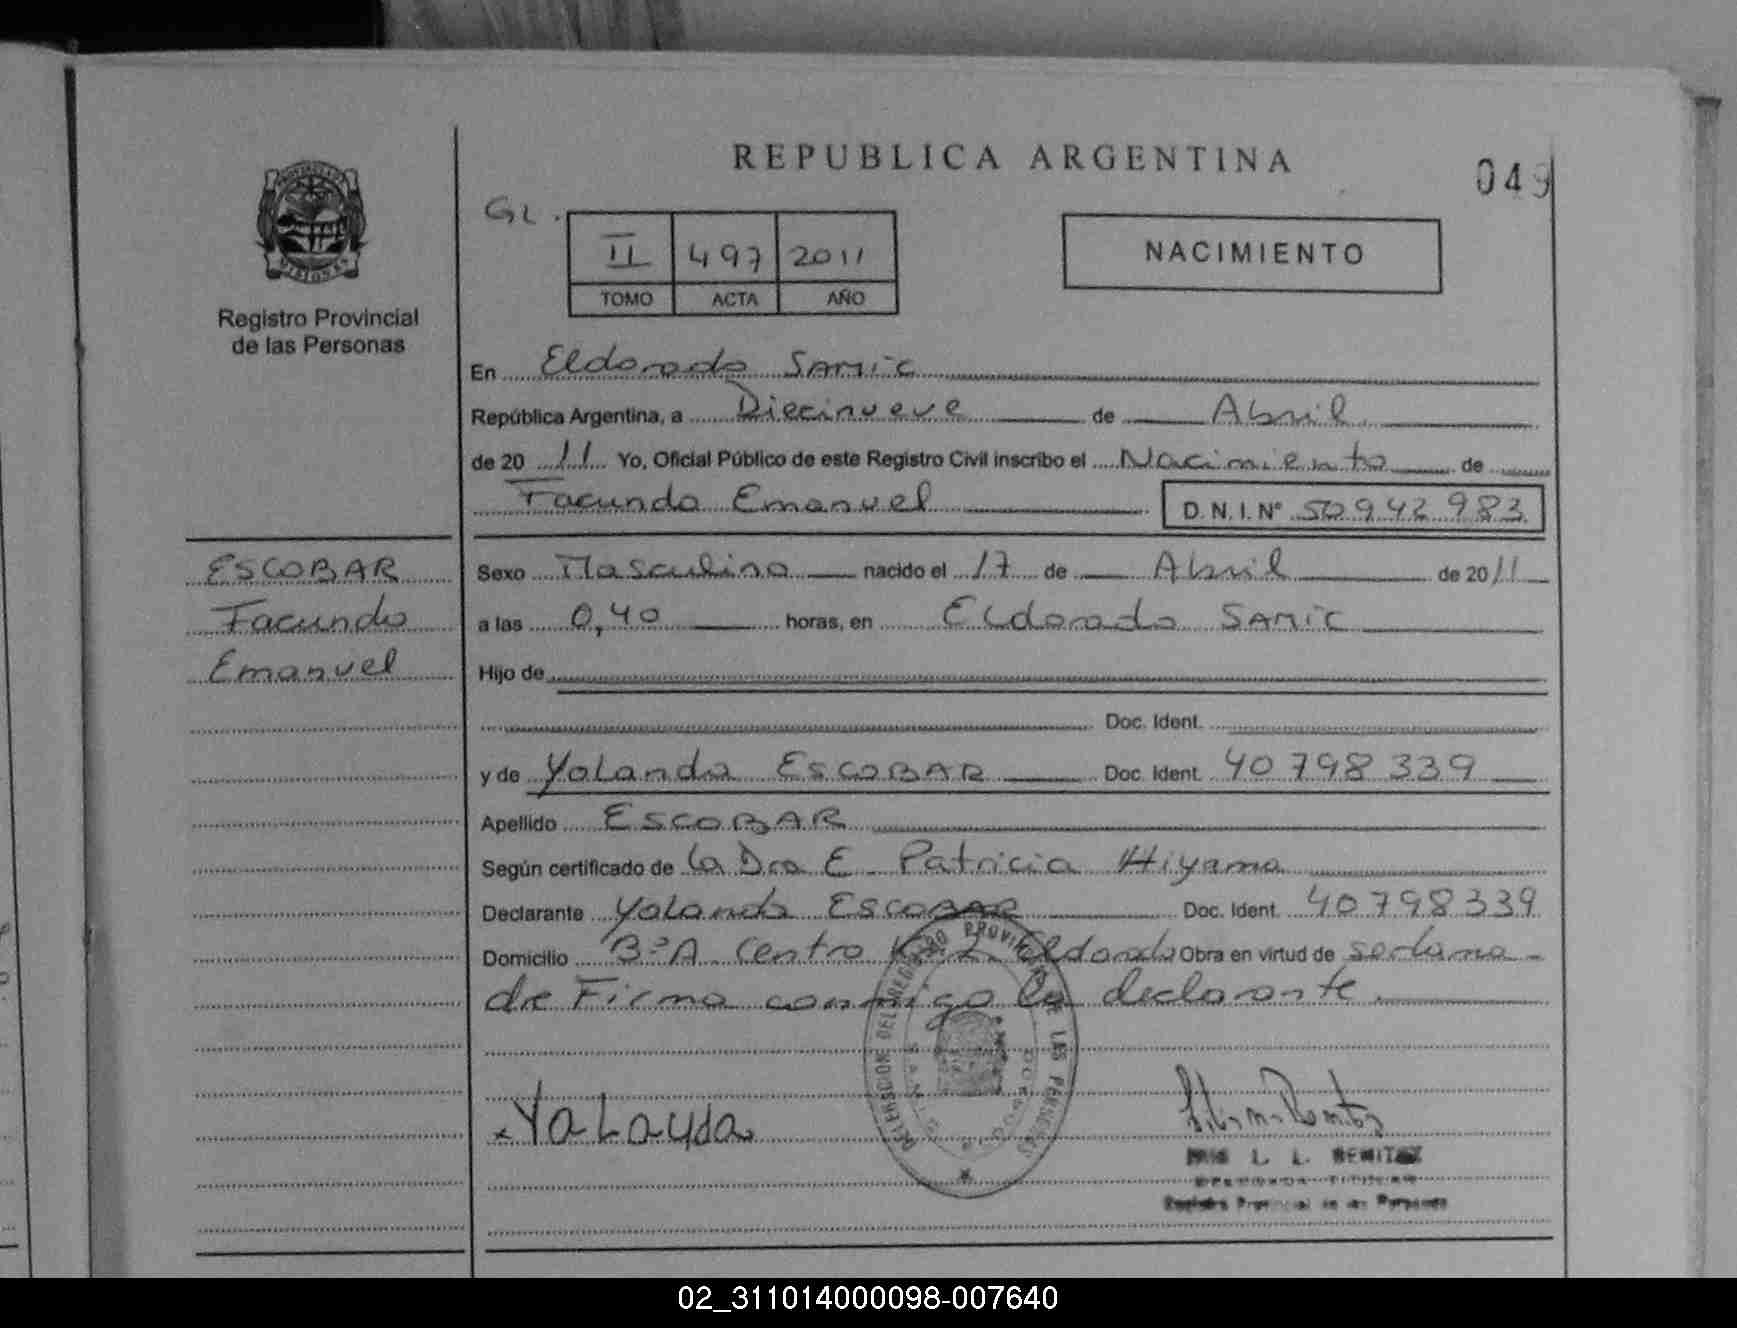 REPUBLICA ARGENTINA
049
GL.
II 497 2011
TOMO ACTA AÑO
NACIMIENTO
Registro Provincial
de las Personas
En Eldorado SAMIC
República Argentina, a Diecinueve de Abril
de 20 11 Yo, Oficial Público de este Registro Civil inscribo el Nacimiento de
Facundo Emanuel D.N.I.Nº 50942983
ESCOBAR
Facundo
Emanuel
Sexo Masculino nacido el 17 de Abril de 2011
a las 0,40 horas, en ELdorado SAMIC
Hijo de
Doc. Ident.
y de Yolanda ESCOBAR Doc. Ident. 40798339
Apellido ESCOBAR
Según certificado de la Dra E. Patricia Hiyama
Declarante Yolanda ESCOBAR Doc. Ident. 40798339
Domicilio BºA. Centro Km 2 Eldorado Obra en virtud de ser la ma-
dre Firma conmigo la declarante.
DELEGACION DEL REGISTRO PROVINCIAL DE LAS PERSONAS
YaLayda
L. L. BENITEZ
Registro Provincial de las Personas
02_311014000098-007640